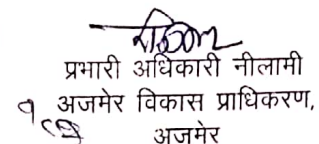 प्रभारी अधिकारी नीलामी
अजमेर विकास प्राधिकरण,
अजमेर